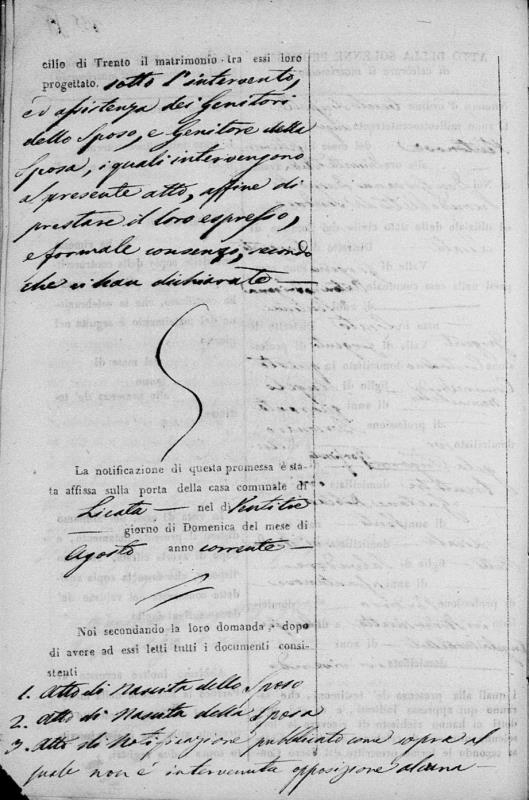 cilio di Trento il matrimonio tra essi loro
progettato, sotto l'intervento,
ed assistenza dei Genitori
dello Sposo, e Genitore della
Sposa, i quali intervengono
al presente atto, affine di
prestare il loro espresso,
e formale consenzo, secondo
che vi han dichiarato
La notificazione di questa promessa è sta-
ta affissa sulla porta della casa comunale di
Licata nel dì Ventitre
giorno di Domenica del mese di
Agosto anno corrente
Noi secondando la loro domanda, dopo
di avere ad essi letti tutti i documenti consi-
stenti
1. Atto di Nascita dello Sposo
2. Atto di Nascita della Sposa
3. Atto di Notificazione pubblicato come sopra al
quale non è intervenuta opposizione alcuna